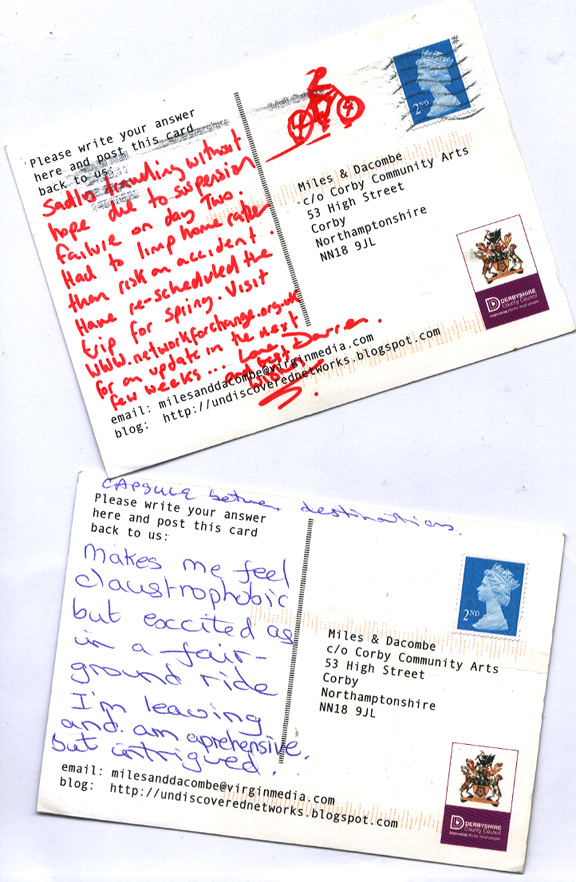 Please write your answer
here and post this card
back to us:
Sadlo travelling without
hope due to suspension
failure on day Two.
Had to limp home rather
than risk an accident.
Have re-scheduled the
trip for spring. Visit
www.networkforchange.org.uk
for an update in the next
few weeks... Love, Darren.
and best
wishes
2ND
Miles & Dacombe
c/o Corby Community Arts
53 High Street
Corby
Northamptonshire
NN18 9JL
DERBYSHIRE
County Council
Improving life for local people
email: milesanddacombe@virginmedia.com
blog: http://undiscoverednetworks.blogspot.com
CAPSULE between destinations.
Please write your answer
here and post this card
back to us:
Makes me feel
claustrophobic
but excited as
in a fair-
ground ride
I'm leaving
and am aprehensive.
but intrigued.
2ND
Miles & Dacombe
c/o Corby Community Arts
53 High Street
Corby
Northamptonshire
NN18 9JL
DERBYSHIRE
County Council
Improving life for local people
email: milesanddacombe@virginmedia.com
blog: http://undiscoverednetworks.blogspot.com